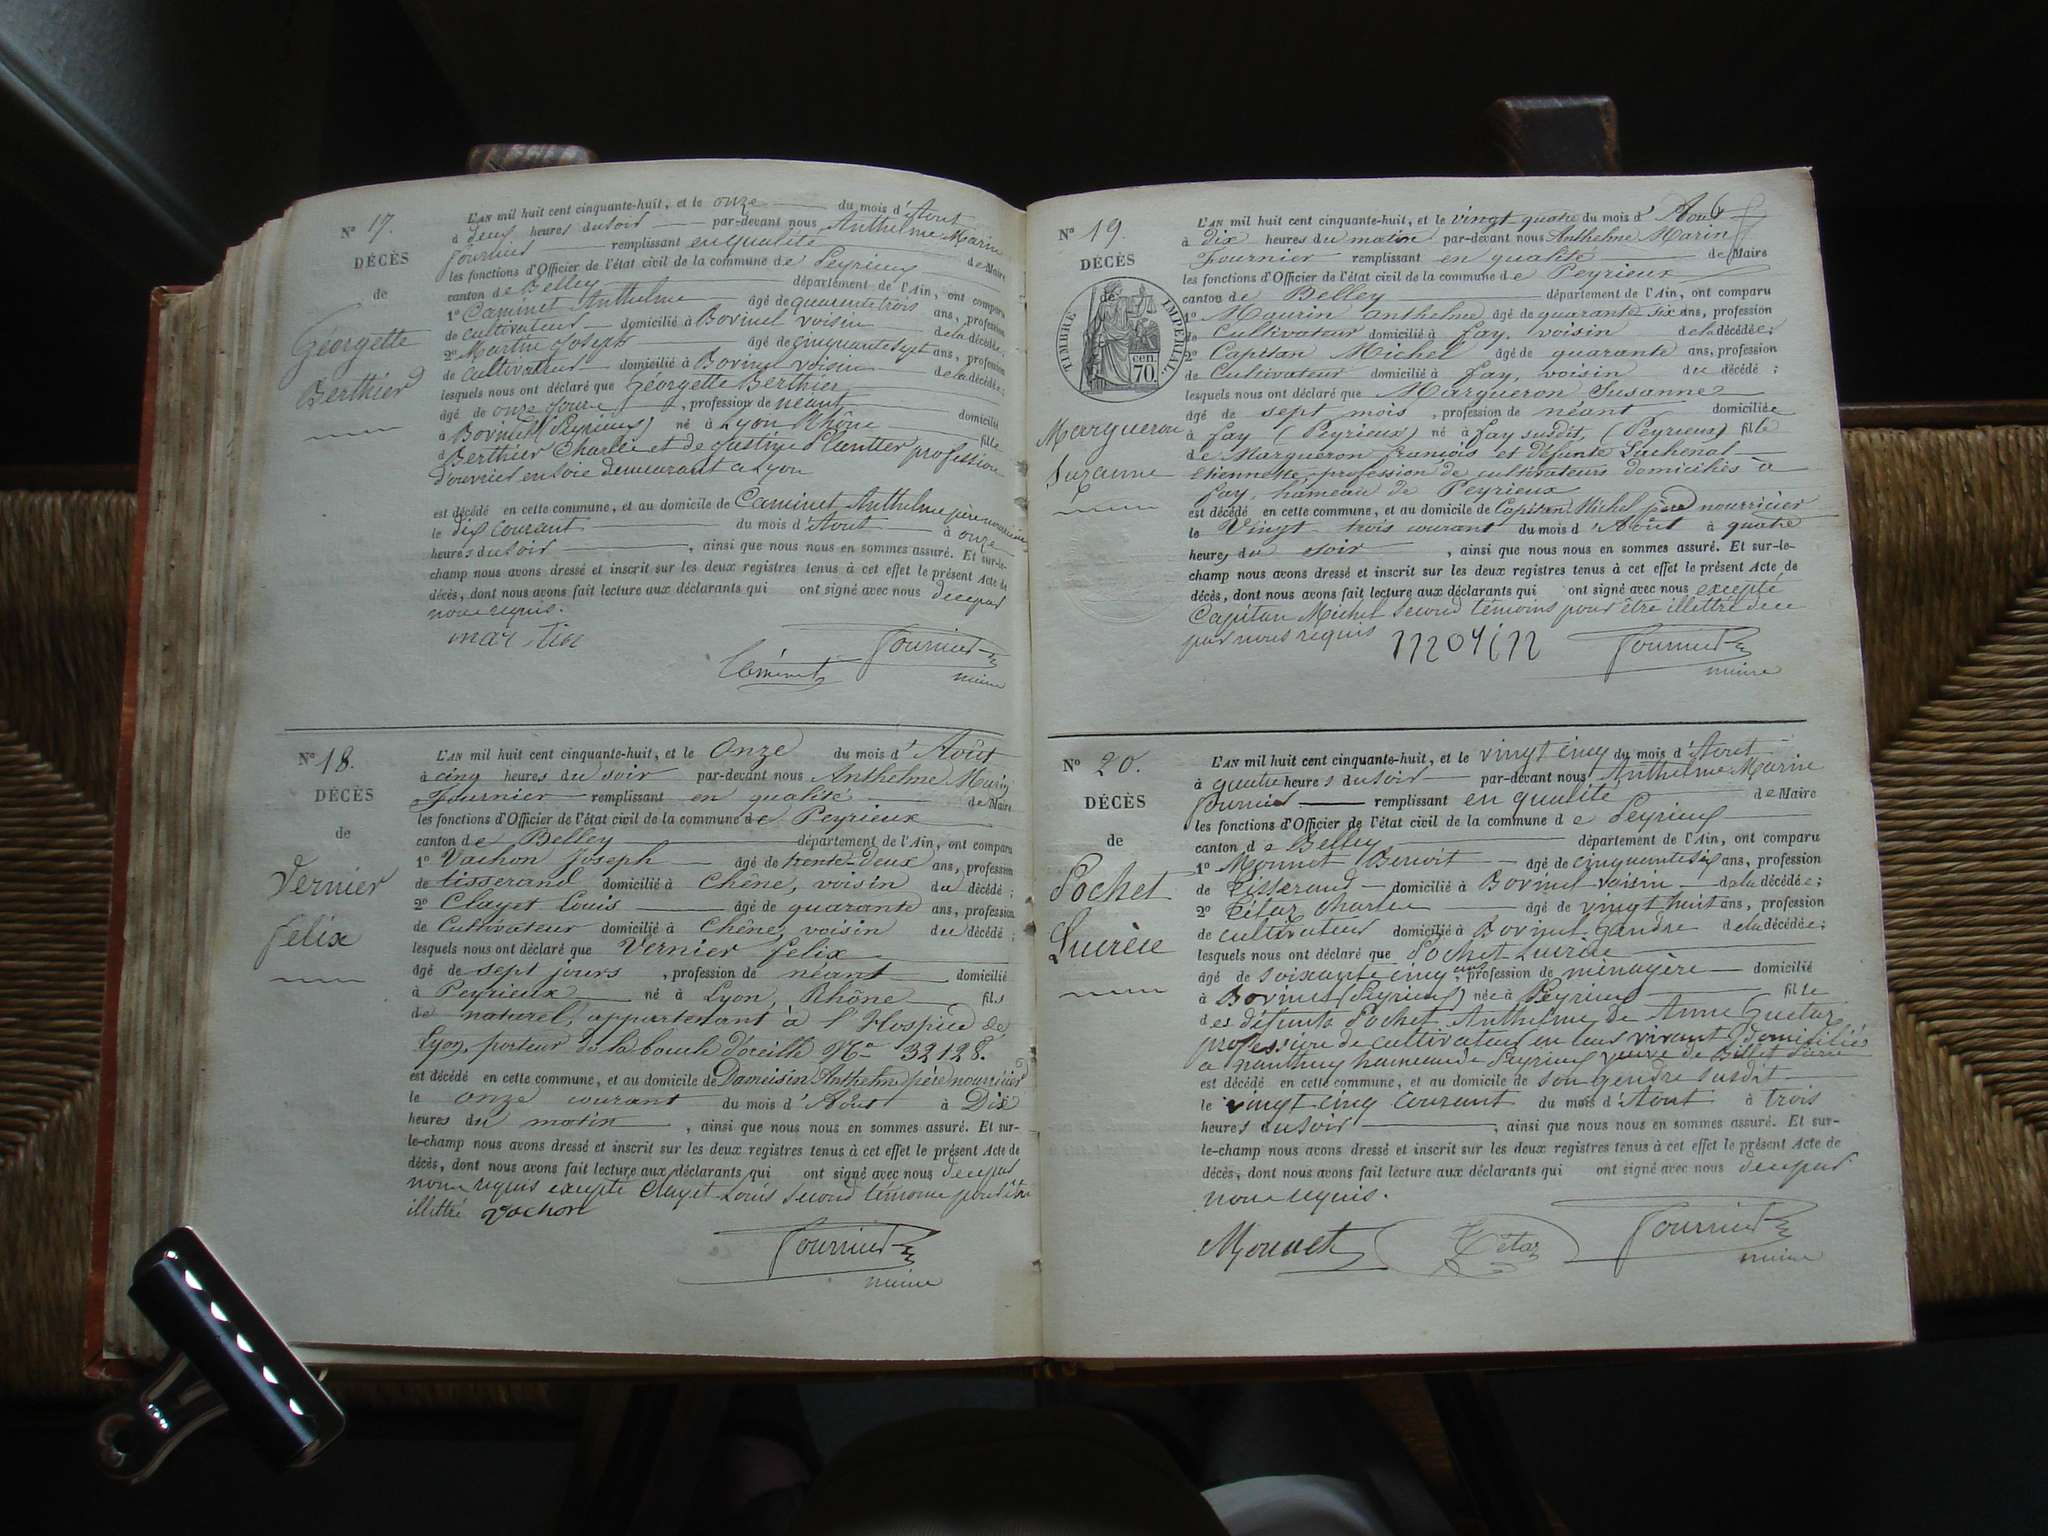 N° 17.
DÉCÈS
de
Géorgette
Berthier
L'AN mil huit cent cinquante-huit, et le onze du mois d'Aout
à deux heures du soir par-devant nous Anthelme Marin
Fournier remplissant en qualité de Maire
les fonctions d'Officier de l'état civil de la commune de Peyrieux
canton de Belley département de l'Ain, ont comparu
1° Caminet Anthelme âgé de quarante trois ans, profession
de cultivateur domicilié à Bovinel voisin de la décédée;
2° Martin Joseph âgé de cinquante sept ans, profession
de cultivateur domicilié à Bovinel voisin de la décédée;
lesquels nous ont déclaré que Georgette Berthier
âgé de onze jours, profession de néant domicilié
à Bovinel (Peyrieux) né à Lyon Rhône fille
d Berthier Charles et de Justine profession
d'ouvrier en soie demeurant a Lyon
est décédé en cette commune, et au domicile de Caminet Anthelme père nourricier
le dix courant du mois d'Aout à onze
heures du soir, ainsi que nous nous en sommes assuré. Et sur-le-
champ nous avons dressé et inscrit sur les deux registres tenus à cet effet le présent Acte de
décès, dont nous avons fait lecture aux déclarants qui ont signé avec nous de ce par
nous requis.
mar tin
Caminet Fournier
maire
N° 18.
DÉCÈS
de
Vernier
Félix
L'AN mil huit cent cinquante-huit, et le Onze du mois d'Août
à cinq heures du soir par-devant nous Anthelme Marin
Fournier remplissant en qualité de Maire
les fonctions d'Officier de l'état civil de la commune de Peyrieux
canton de Belley département de l'Ain, ont comparu
1° Vachon Joseph âgé de trente-deux ans, profession
de tisserand domicilié à Chêne, voisin du décédé;
2° Clayet Louis âgé de quarante ans, profession
de Cultivateur domicilié à Chêne, voisin du décédé;
lesquels nous ont déclaré que Vernier Felix
âgé de sept jours, profession de néant domicilié
à Peyrieux né à Lyon, Rhône fils
de naturel, appartenant à l'Hospice de
Lyon, porteur de la boucle d'oreille N° 32128.
est décédé en cette commune, et au domicile de Anthelme père nourricier
le onze courant du mois d'Août à Dix
heures du matin, ainsi que nous nous en sommes assuré. Et sur-
le-champ nous avons dressé et inscrit sur les deux registres tenus à cet effet le présent Acte de
décès, dont nous avons fait lecture aux déclarants qui ont signé avec nous de ce par
nous requis excepté Clayet Louis second témoins pour être
illettré Vachon
Fournier
maire
N° 19.
DÉCÈS
de
TIMBRE IMPERIAL.
70 cen.
Margueron
Suzanne
L'AN mil huit cent cinquante-huit, et le vingt quatre du mois d'Aout
à dix heures du matin par-devant nous Anthelme Marin
Fournier remplissant en qualité de Maire
les fonctions d'Officier de l'état civil de la commune de Peyrieux
canton de Belley département de l'Ain, ont comparu
1° Maurin anthelme âgé de quarante six ans, profession
de Cultivateur domicilié à fay, voisin de la décédée;
2° Capitan Michel âgé de quarante ans, profession
de Cultivateur domicilié à fay, voisin du décédé;
lesquels nous ont déclaré que Margueron Susanne
âgé de sept mois, profession de néant domiciliée
à fay (Peyrieux) né à fay susdit, (Peyrieux) fille
de Margueron françois et défunte Lachenal
etiennette, profession de cultivateurs domiciliés à
fay, hameau de Peyrieux
est décédé en cette commune, et au domicile de Capitan Michel père nourricier
le Vingt trois courant du mois d'Août à quatre
heures du soir, ainsi que nous nous en sommes assuré. Et sur-le-
champ nous avons dressé et inscrit sur les deux registres tenus à cet effet le présent Acte de
décès, dont nous avons fait lecture aux déclarants qui ont signé avec nous excepté
Capitan Michel second témoins pour être illettré de ce
par nous requis morin Fournier
maire
N° 20.
DÉCÈS
de
Pochet
Lucrèce
L'AN mil huit cent cinquante-huit, et le vingt cinq du mois d'Aout
à quatre heures du soir par-devant nous Anthelme Marin
Fournier remplissant en qualité de Maire
les fonctions d'Officier de l'état civil de la commune de Peyrieux
canton de Belley département de l'Ain, ont comparu
1° Monnet Benoit âgé de cinquante six ans, profession
de Tisserand domicilié à Bovinel voisin de la décédée;
2° Tétaz Charles âgé de vingt huit ans, profession
de cultivateur domicilié à Bovinel Gendre de la décédée;
lesquels nous ont déclaré que Pochet Lucrèce
âgé de soixante cinq ans, profession de ménagère domicilié
à Bovinel (Peyrieux) née à Peyrieux fille
des défunts Pochet Anthelme de Anne Guetaz
profession de cultivateur en leus vivant domiciliés
a hameau de Peyrieux veuve de Billet
est décédé en cette commune, et au domicile de son gendre susdit
le vingt cinq courant du mois d'Aout à trois
heures du soir, ainsi que nous nous en sommes assuré. Et sur-
le-champ nous avons dressé et inscrit sur les deux registres tenus à cet effet le présent Acte de
décès, dont nous avons fait lecture aux déclarants qui ont signé avec nous de ce par
nous requis.
Monnet Tétaz Fournier
maire